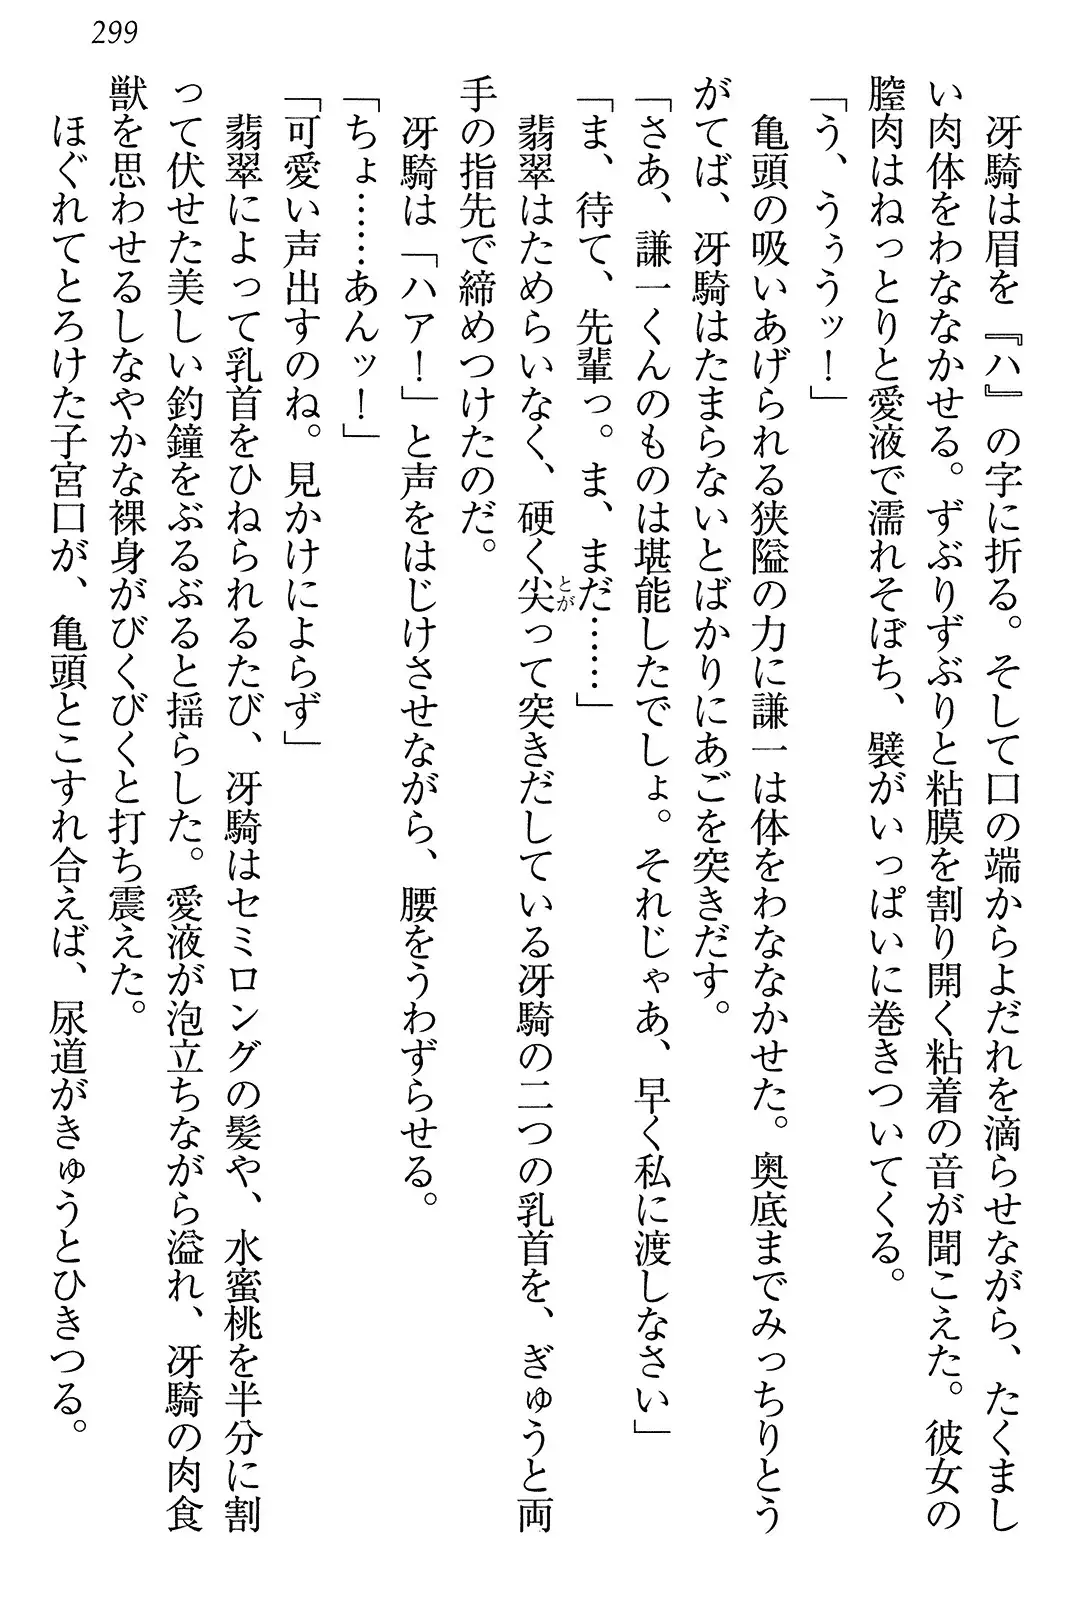 299
冴騎は眉を『ハ』の字に折る。そして口の端からよだれを滴らせながら、たくまし
い肉体をわななかせる。ずぶりずぶりと粘膜を割り開く粘着の音が聞こえた。彼女の
膣肉はねっとりと愛液で濡れそぼち、襞がいっぱいに巻きついてくる。
「う、うぅうッ！」
亀頭の吸いあげられる狭隘の力に謙一は体をわななかせた。奥底までみっちりとう
がてば、冴騎はたまらないとばかりにあごを突きだす。
「さあ、謙一くんのものは堪能したでしょ。それじゃあ、早く私に渡しなさい」
「ま、待て、先輩っ。ま、まだ……」
翡翠はためらいなく、硬く尖って突きだしている冴騎の二つの乳首を、ぎゅうと両
とが
手の指先で締めつけたのだ。
冴騎は「ハア！」と声をはじけさせながら、腰をうわずらせる。
「ちょ……あんッ！」
「可愛い声出すのね。見かけによらず」
翡翠によって乳首をひねられるたび、冴騎はセミロングの髪や、水蜜桃を半分に割
って伏せた美しい釣鐘をぶるぶると揺らした。愛液が泡立ちながら溢れ、冴騎の肉食
獣を思わせるしなやかな裸身がびくびくと打ち震えた。
ほぐれてとろけた子宮口が、亀頭とこすれ合えば、尿道がきゅうとひきつる。